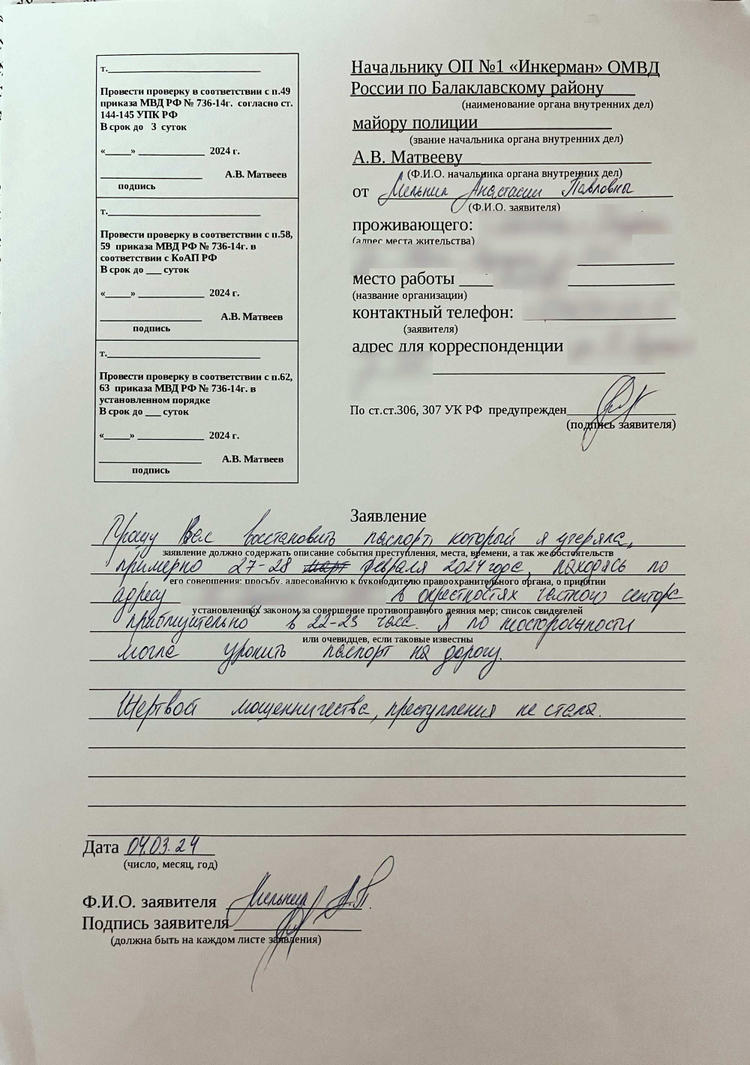 т.
Провести проверку в соответствии с п.49
приказа МВД РФ № 736-14г. согласно ст.
144-145 УПК РФ
В срок до 3 суток
«____» ____________ 2024 г.
А.В. Матвеев
подпись
т.
Провести проверку в соответствии с п.58,
59 приказа МВД РФ № 736-14г. в
соответствии с КоАП РФ
В срок до ___ суток
«____» ____________ 2024 г.
А.В. Матвеев
подпись
т.
Провести проверку в соответствии с п.62,
63 приказа МВД РФ № 736-14г. в
установленном порядке
В срок до ___ суток
«____» ____________ 2024 г.
А.В. Матвеев
подпись
Начальнику ОП №1 «Инкерман» ОМВД
России по Балаклавскому району
(наименование органа внутренних дел)
майору полиции
(звание начальника органа внутренних дел)
А.В. Матвееву
(Ф.И.О. начальника органа внутренних дел)
от Мельник Анастасии Павловны
(Ф.И.О. заявителя)
проживающего:
(адрес места жительства)
место работы
(название организации)
контактный телефон:
(заявителя)
адрес для корреспонденции
По ст.ст.306, 307 УК РФ предупрежден
(подпись заявителя)
Заявление
Прошу Вас восстановить паспорт, который я утеряла,
заявление должно содержать описание события преступления, места, времени, а так же обстоятельств
примерно 27-28 март февраля 2024 года, находясь по
его совершения: просьбу, адресованную к руководителю правоохранительного органа, о принятии
адресу в окрестностях частного сектора
установленных законом за совершение противоправного деяния мер; список свидетелей
приблизительно в 22-23 часа. Я по неосторожности
или очевидцев, если таковые известны
могла уронить паспорт на дорогу.
Жертвой мошенничества, преступления не стала.
Дата 04.03.24
(число, месяц, год)
Ф.И.О. заявителя Мельник А.П.
Подпись заявителя
(должна быть на каждом листе заявления)